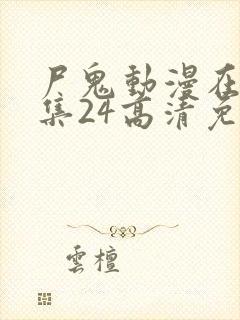 尸鬼動漫在
集24高清免
雲檀